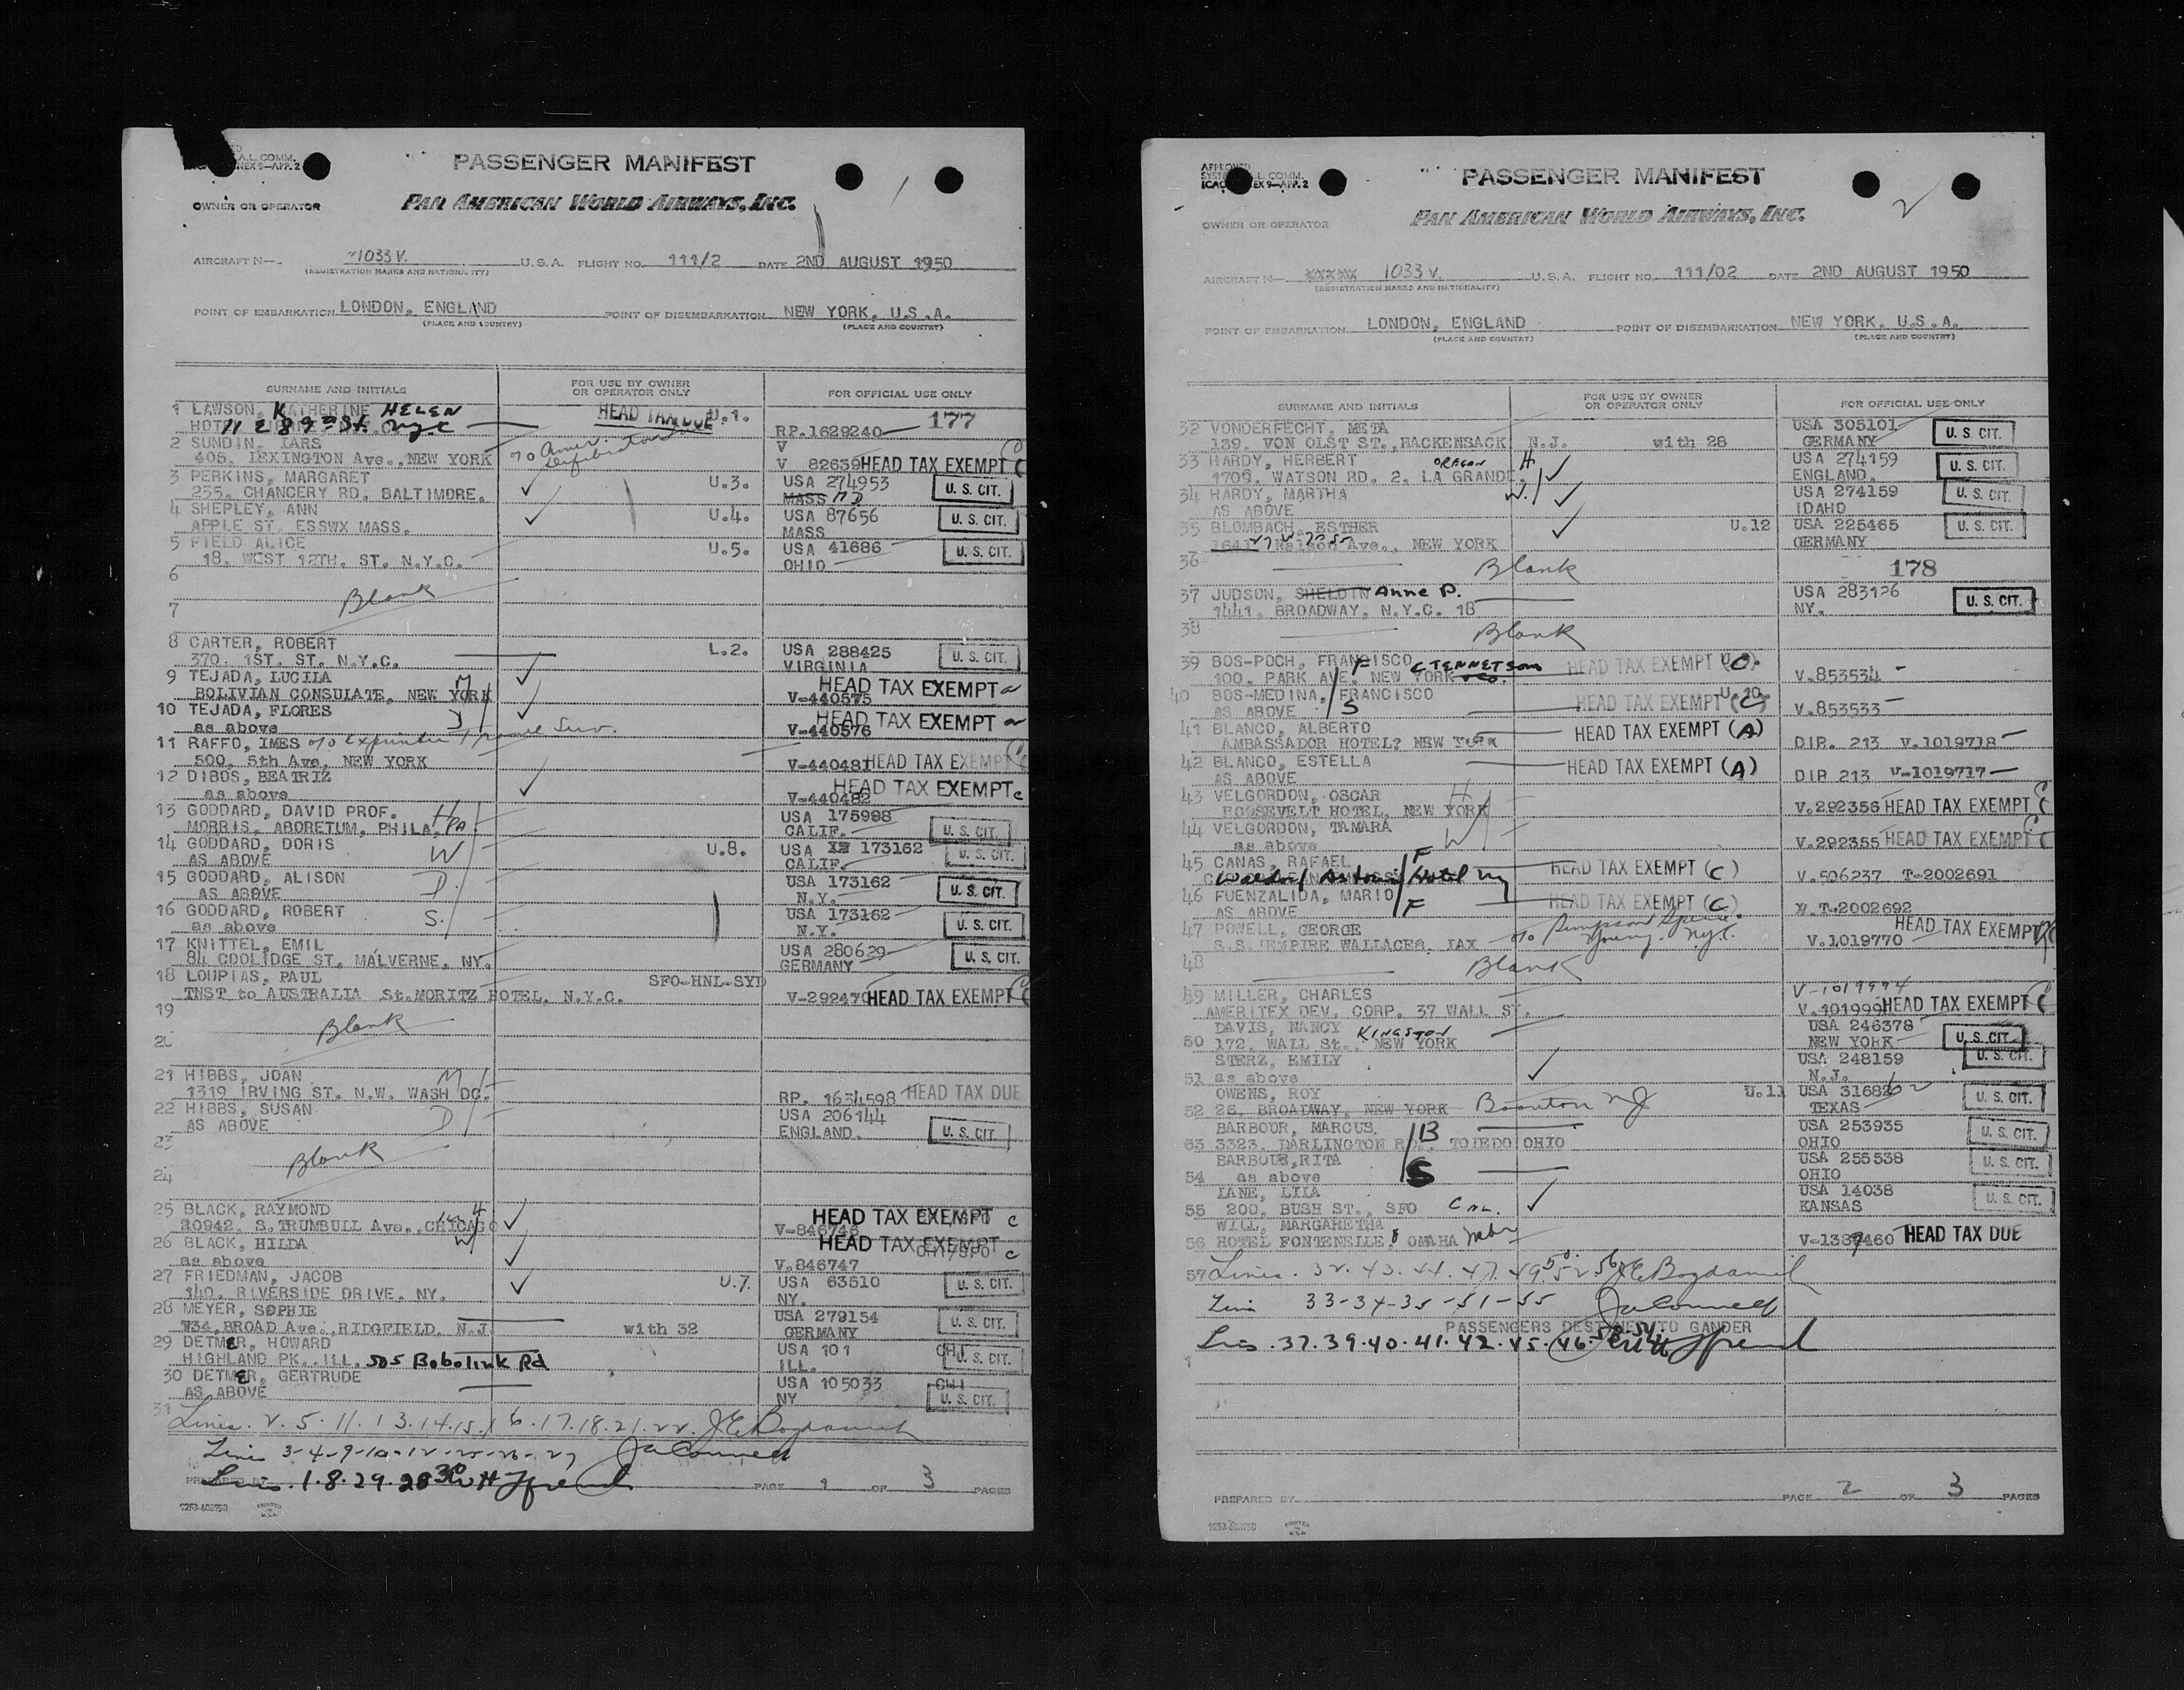 A.L. COMM.
NEX 9—APP. 2
PASSENGER MANIFEST
OWNER OR OPERATOR PAN AMERICAN WORLD AIRWAYS, INC.
AIRCRAFT N— 1033 V. U.S.A. FLIGHT NO. 111/2 DATE 2ND AUGUST 1950
(REGISTRATION MARKS AND NATIONALITY)
POINT OF EMBARKATION LONDON, ENGLAND POINT OF DISEMBARKATION NEW YORK, U.S.A.
(PLACE AND COUNTRY) (PLACE AND COUNTRY)
SURNAME AND INITIALS FOR USE BY OWNER OR OPERATOR ONLY FOR OFFICIAL USE ONLY
1 LAWSON, KATHERINE HELEN HEAD TAX DUE U.1. 177
89th St. NYC RP.1629240
2 SUNDIN, LARS V
405. LEXINGTON Ave., NEW YORK V 82639 HEAD TAX EXEMPT C
3 PERKINS, MARGARET U.3. USA 274953 U. S. CIT.
255. CHANCERY RD. BALTIMORE. MASS MD
4 SHEPLEY, ANN U.4. USA 87656 U. S. CIT.
APPLE ST. ESSWX MASS. MASS
5 FIELD ALICE U.5. USA 41686 U. S. CIT.
18. WEST 12TH. ST. N.Y.C. OHIO
6
Blank
7
8 CARTER, ROBERT L.2. USA 288425 U. S. CIT.
370. 1ST. ST. N.Y.C. VIRGINIA
9 TEJADA, LUCILA M HEAD TAX EXEMPT
BOLIVIAN CONSULATE, NEW YORK V-440575
10 TEJADA, FLORES D HEAD TAX EXEMPT
as above V-440576
11 RAFFO, IMES
500. 5th Ave. NEW YORK V-440481 HEAD TAX EXEMPT C
12 DIBOS, BEATRIZ HEAD TAX EXEMPT C
as above V-440482
13 GODDARD, DAVID PROF. H USA 175998
MORRIS. ABORETUM, PHILA. PA CALIF. U. S. CIT.
14 GODDARD, DORIS W U.8. USA 173162
AS ABOVE CALIF. U. S. CIT.
15 GODDARD, ALISON D. USA 173162 U. S. CIT.
AS ABOVE N.Y.
16 GODDARD, ROBERT S. USA 173162 U. S. CIT.
as above N.Y.
17 KNITTEL, EMIL USA 280629 U. S. CIT.
84 COOLIDGE ST. MALVERNE, NY. GERMANY
18 LOUPIAS, PAUL SFO-HNL-SYD
TNST to AUSTRALIA St.MORITZ HOTEL. N.Y.C. V-292470 HEAD TAX EXEMPT C
19
Blank
20
21 HIBBS, JOAN M
1319 IRVING ST. N.W. WASH DC. RP. 1634598 HEAD TAX DUE
22 HIBBS, SUSAN D USA 206144
AS ABOVE ENGLAND. U. S. CIT.
23
Blank
24
25 BLACK, RAYMOND H HEAD TAX EXEMPT C
10942. S.TRUMBULL Ave., CHICAGO V-846746
26 BLACK, HILDA W HEAD TAX EXEMPT C
as above V.846747
27 FRIEDMAN, JACOB U.7. USA 63510 U. S. CIT.
140. RIVERSIDE DRIVE. NY. NY.
28 MEYER, SOPHIE USA 279154 U. S. CIT.
734.BROAD Ave.,RIDGFIELD. N.J. with 32 GERMANY
29 DETMER, HOWARD USA 101 CHI U. S. CIT.
HIGHLAND PK. ILL. 505 Bobolink Rd ILL.
30 DETMER, GERTRUDE USA 105033 CHI
AS ABOVE NY U. S. CIT.
31 Lines. 2. 5. 11. 13. 14. 15. 16. 17. 18. 21. 22.
Line 3-4-9-10-12-25-26-27
PREPARED BY PAGE 1 OF 3 PAGES
9253-608750 PRINTED IN U.S.A.
APPROVED
A.L. COMM.
ICAO EX 9—APP. 2
PASSENGER MANIFEST
2
OWNER OR OPERATOR PAN AMERICAN WORLD AIRWAYS, INC.
AIRCRAFT N— XXXXX 1033 V. U.S.A. FLIGHT NO. 111/02 DATE 2ND AUGUST 1950
(REGISTRATION MARKS AND NATIONALITY)
POINT OF EMBARKATION LONDON, ENGLAND POINT OF DISEMBARKATION NEW YORK, U.S.A.
(PLACE AND COUNTRY) (PLACE AND COUNTRY)
SURNAME AND INITIALS FOR USE BY OWNER OR OPERATOR ONLY FOR OFFICIAL USE ONLY
32 VONDERFECHT, META USA 305101 U. S. CIT.
139. VON OLST ST.,HACKENSACK N.J. with 28 GERMANY
33 HARDY, HERBERT OREGON H USA 274159 U. S. CIT.
1709. WATSON RD. 2. LA GRANDE. ENGLAND.
34 HARDY, MARTHA W. USA 274159 U. S. CIT.
AS ABOVE IDAHO
35 BLOMBACH, ESTHER U.12 USA 225465 U. S. CIT.
1641 Nelson Ave., NEW YORK GERMANY
36 Blank 178
37 JUDSON, SHELDIN Anne P. USA 283126 U. S. CIT.
1441. BROADWAY. N.Y.C. 18 NY.
38 Blank
39 BOS-POCH, FRANCISCO F HEAD TAX EXEMPT
100. PARK AVE. NEW YORK V.853534
40 BOS-MEDINA, FRANCISCO HEAD TAX EXEMPT (C) U.10.
AS ABOVE S V.853533
41 BLANCO, ALBERTO HEAD TAX EXEMPT (A)
AMBASSADOR HOTEL? NEW YORK DIP. 213 V.1019718
42 BLANCO, ESTELLA HEAD TAX EXEMPT (A)
AS ABOVE DIP 213 V-1019717
43 VELGORDON, OSCAR H
ROOSEVELT HOTEL, NEW YORK V.292356 HEAD TAX EXEMPT C
44 VELGORDON, TAMARA W
as above V.292355 HEAD TAX EXEMPT C
45 CANAS, RAFAEL F HEAD TAX EXEMPT (C)
Waldorf Astoria Hotel NY V.506237 T-2002691
46 FUENZALIDA, MARIO F HEAD TAX EXEMPT (C)
AS ABOVE V.T-2002692
47 POWELL, GEORGE HEAD TAX EXEMPT
S.S. EMPIRE WALLACE V.1019770
48 Blank
49 MILLER, CHARLES V-1019994
AMERITEX DEV. CORP. 37 WALL ST. HEAD TAX EXEMPT C
DAVIS, NANCY KINGSTON USA 246378
50 172. WALL St. NEW YORK NEW YORK U. S. CIT.
STERZ, EMILY USA 248159 U. S. CIT.
51 as above N.J.
OWENS, ROY U.11 USA U. S. CIT.
52 26. BROADWAY, NEW YORK Boonton NJ TEXAS
BARBOUR, MARCUS. B USA 253935 U. S. CIT.
53 3323. DARLINGTON RD., TOLEDO OHIO OHIO
BARBOUR,RITA S USA 255538 U. S. CIT.
54 as above OHIO
LANE, LILA USA 14038 U. S. CIT.
55 200. BUSH ST., SFO CAL. KANSAS
WILL, MARGARETHA
56 HOTEL FONTENELLE, OMAHA Nebr HEAD TAX DUE
57 Lines. 32. 43. 44. 47. 49. 50. 52. 56
Line 33-34-35-51-55
PASSENGERS DESTINED TO GANDER
37. 39. 40. 41. 42. 45. 46.
1
PREPARED BY PAGE 2 OF 3 PAGES
9253-608750 PRINTED IN U.S.A.